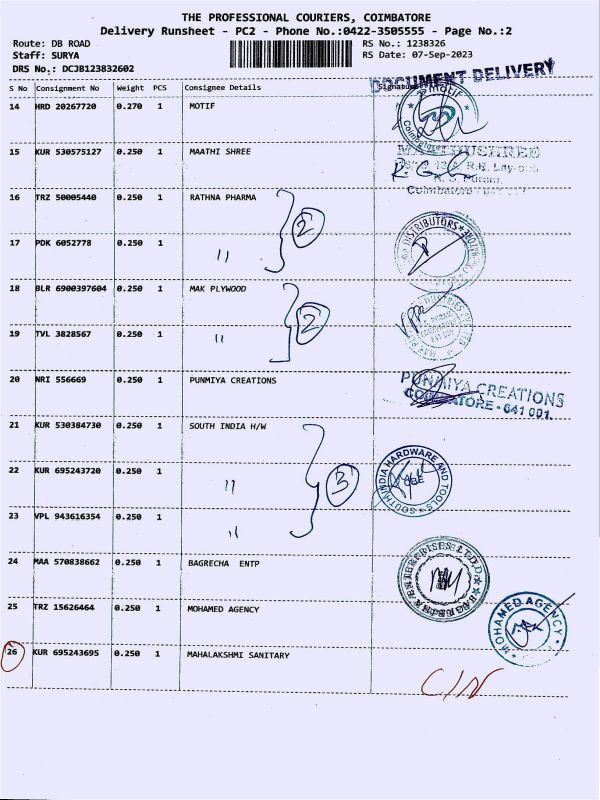 THE PROFESSIONAL COURIERS, COIMBATORE
Delivery Runsheet - PC2 - Phone No.:0422-3505555 - Page No.:2
Route: DB ROAD
RS No.: 1238326
Staff: SURYA
RS Date: 07-Sep-2023
DRS No.: DCJB123832602
DOCUMENT DELIVERY
S No Consignment No Weight PCS Consignee Details Signature
14 HRD 20267720 0.270 1 MOTIF
MOTIF
15 KUR 530575127 0.250 1 MAATHI SHREE
R.S. Puram,
Coimbatore
16 TRZ 50005440 0.250 1 RATHNA PHARMA
2
17 PDK 6052778 0.250 1 "
DISTRIBUTORS
18 BLR 6900397604 0.250 1 MAK PLYWOOD
2
19 TVL 3828567 0.250 1 "
20 NRI 556669 0.250 1 PUNMIYA CREATIONS
PUNMIYA CREATIONS
COIMBATORE - 641 001.
21 KUR 530384730 0.250 1 SOUTH INDIA H/W
22 KUR 695243720 0.250 1 "
3
SOUTH INDIA HARDWARE AND TOOLS
CBE
23 VPL 943616354 0.250 1 "
24 MAA 570838662 0.250 1 BAGRECHA ENTP
25 TRZ 15626464 0.250 1 MOHAMED AGENCY
MOHAMED AGENCY
26 KUR 695243695 0.250 1 MAHALAKSHMI SANITARY
C/N